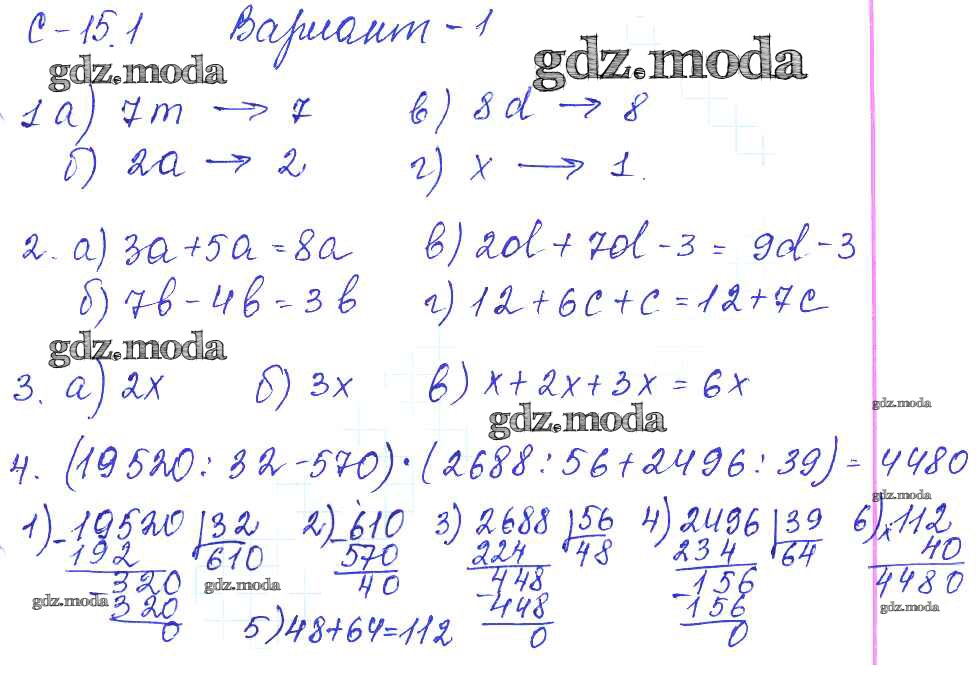 С-15.1 Вариант-1
gdz.moda gdz.moda
1 а) 7m → 7 в) 8d → 8
б) 2a → 2 г) x → 1.
2. а) 3a+5a=8a в) 2d+7d-3=9d-3
б) 7b-4b=3b г) 12+6c+c=12+7c
gdz.moda
3. а) 2x б) 3x в) x+2x+3x=6x
gdz.moda gdz.moda
4. (19520:32-570)·(2688:56+2496:39)=4480
gdz.moda
1) -19520 |32 2) -610 3) 2688 |56 4) 2496 |39 6) x112
192 610 570 224 48 234 64 40
-320 40 -448 -156 4480
gdz.moda gdz.moda gdz.moda
320 448 156
0 5) 48+64=112 0 0